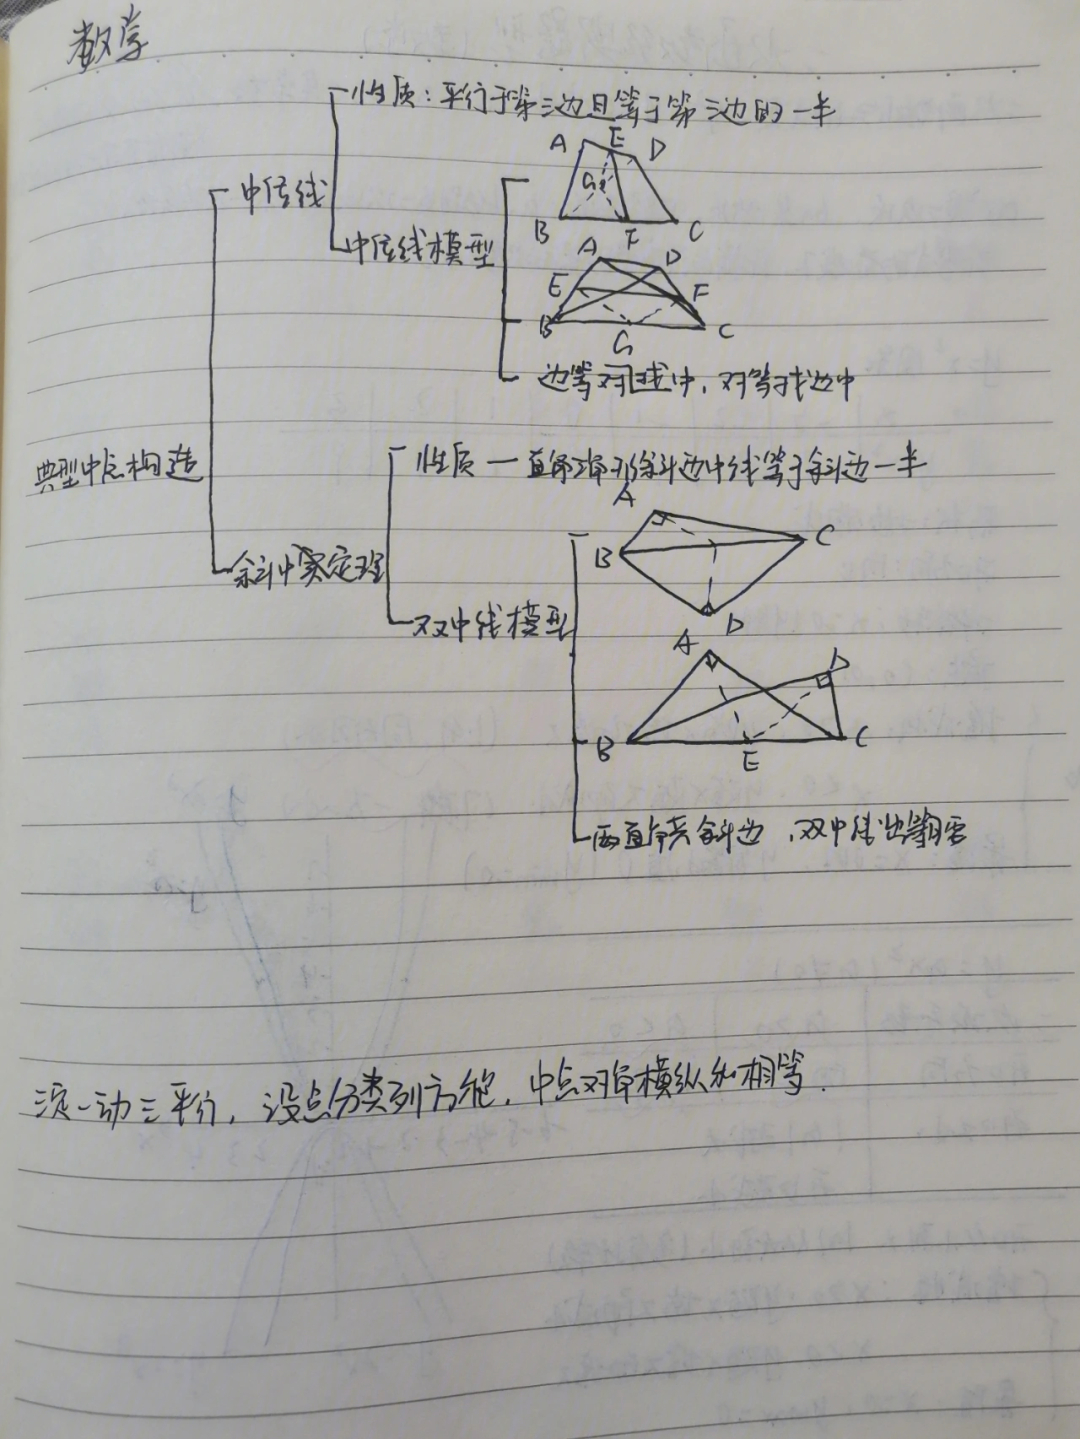 数学
性质：平行于第三边且等于第三边的一半
A E D
G
B F C
中位线
中位线模型
A D
E F
B G C
边等对线中，对等找边中
典型中点构造
性质一直角三角形斜边中线等于斜边一半
A
B C
D
斜中定理
双中线模型
A D
B E C
两直角共斜边，双中线出等腰
三定一动三平行，设点分类列方程，中点对角横纵和相等．